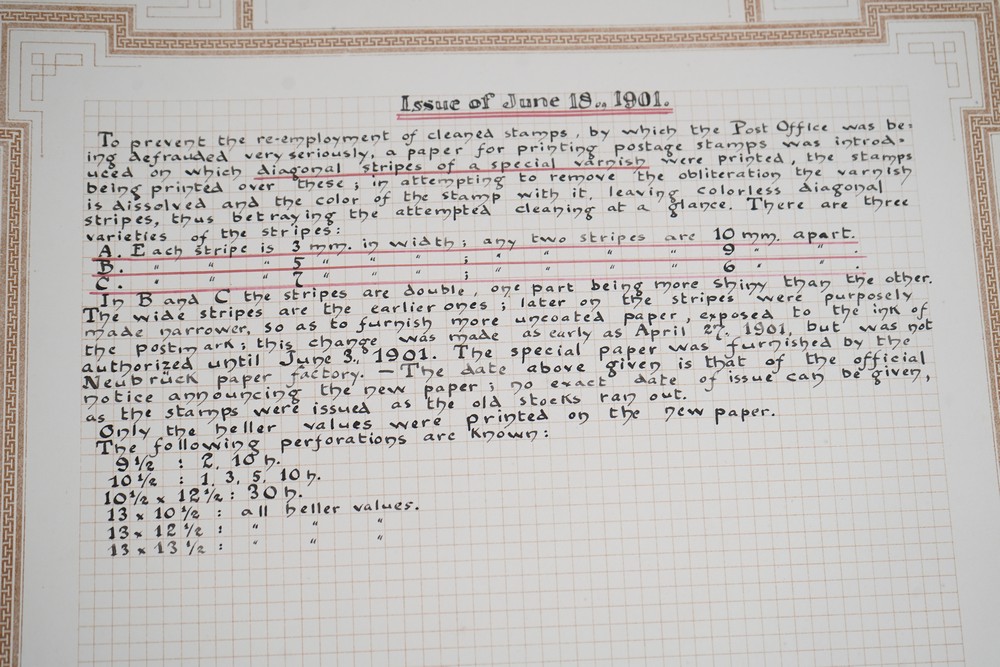 Issue of June 18., 1901.
To prevent the re-employment of cleaned stamps, by which the Post Office was be-
ing defrauded very seriously, a paper for printing postage stamps was introd-
uced on which diagonal stripes of a special varnish were printed, the stamps
being printed over these; in attempting to remove the obliteration the varnish
is dissolved and the color of the stamp with it, leaving colorless diagonal
stripes, thus betraying the attempted cleaning at a glance. There are three
varieties of the stripes:
A. Each stripe is 3 mm. in width; any two stripes are 10 mm. apart.
B. " " " 5 " " " ; " " " " 9 " " .
C. " " " 7 " " " ; " " " " 6 " " .
In B and C the stripes are double, one part being more shiny than the other.
The wide stripes are the earlier ones; later on the stripes were purposely
made narrower, so as to furnish more uncoated paper, exposed to the ink of
the postmark; this change was made as early as April 27. 1901, but was not
authorized until June 3., 1901. The special paper was furnished by the
Neubruck paper factory. — The date above given is that of the official
notice announcing the new paper; no exact date of issue can be given,
as the stamps were issued as the old stocks ran out.
Only the heller values were printed on the new paper.
The following perforations are known:
9 1/2 : 2, 10 h.
10 1/2 : 1, 3, 5, 10 h.
10 1/2 x 12 1/2 : 30 h.
13 x 10 1/2 : all heller values.
13 x 12 1/2 : " " "
13 x 13 1/2 : " " "